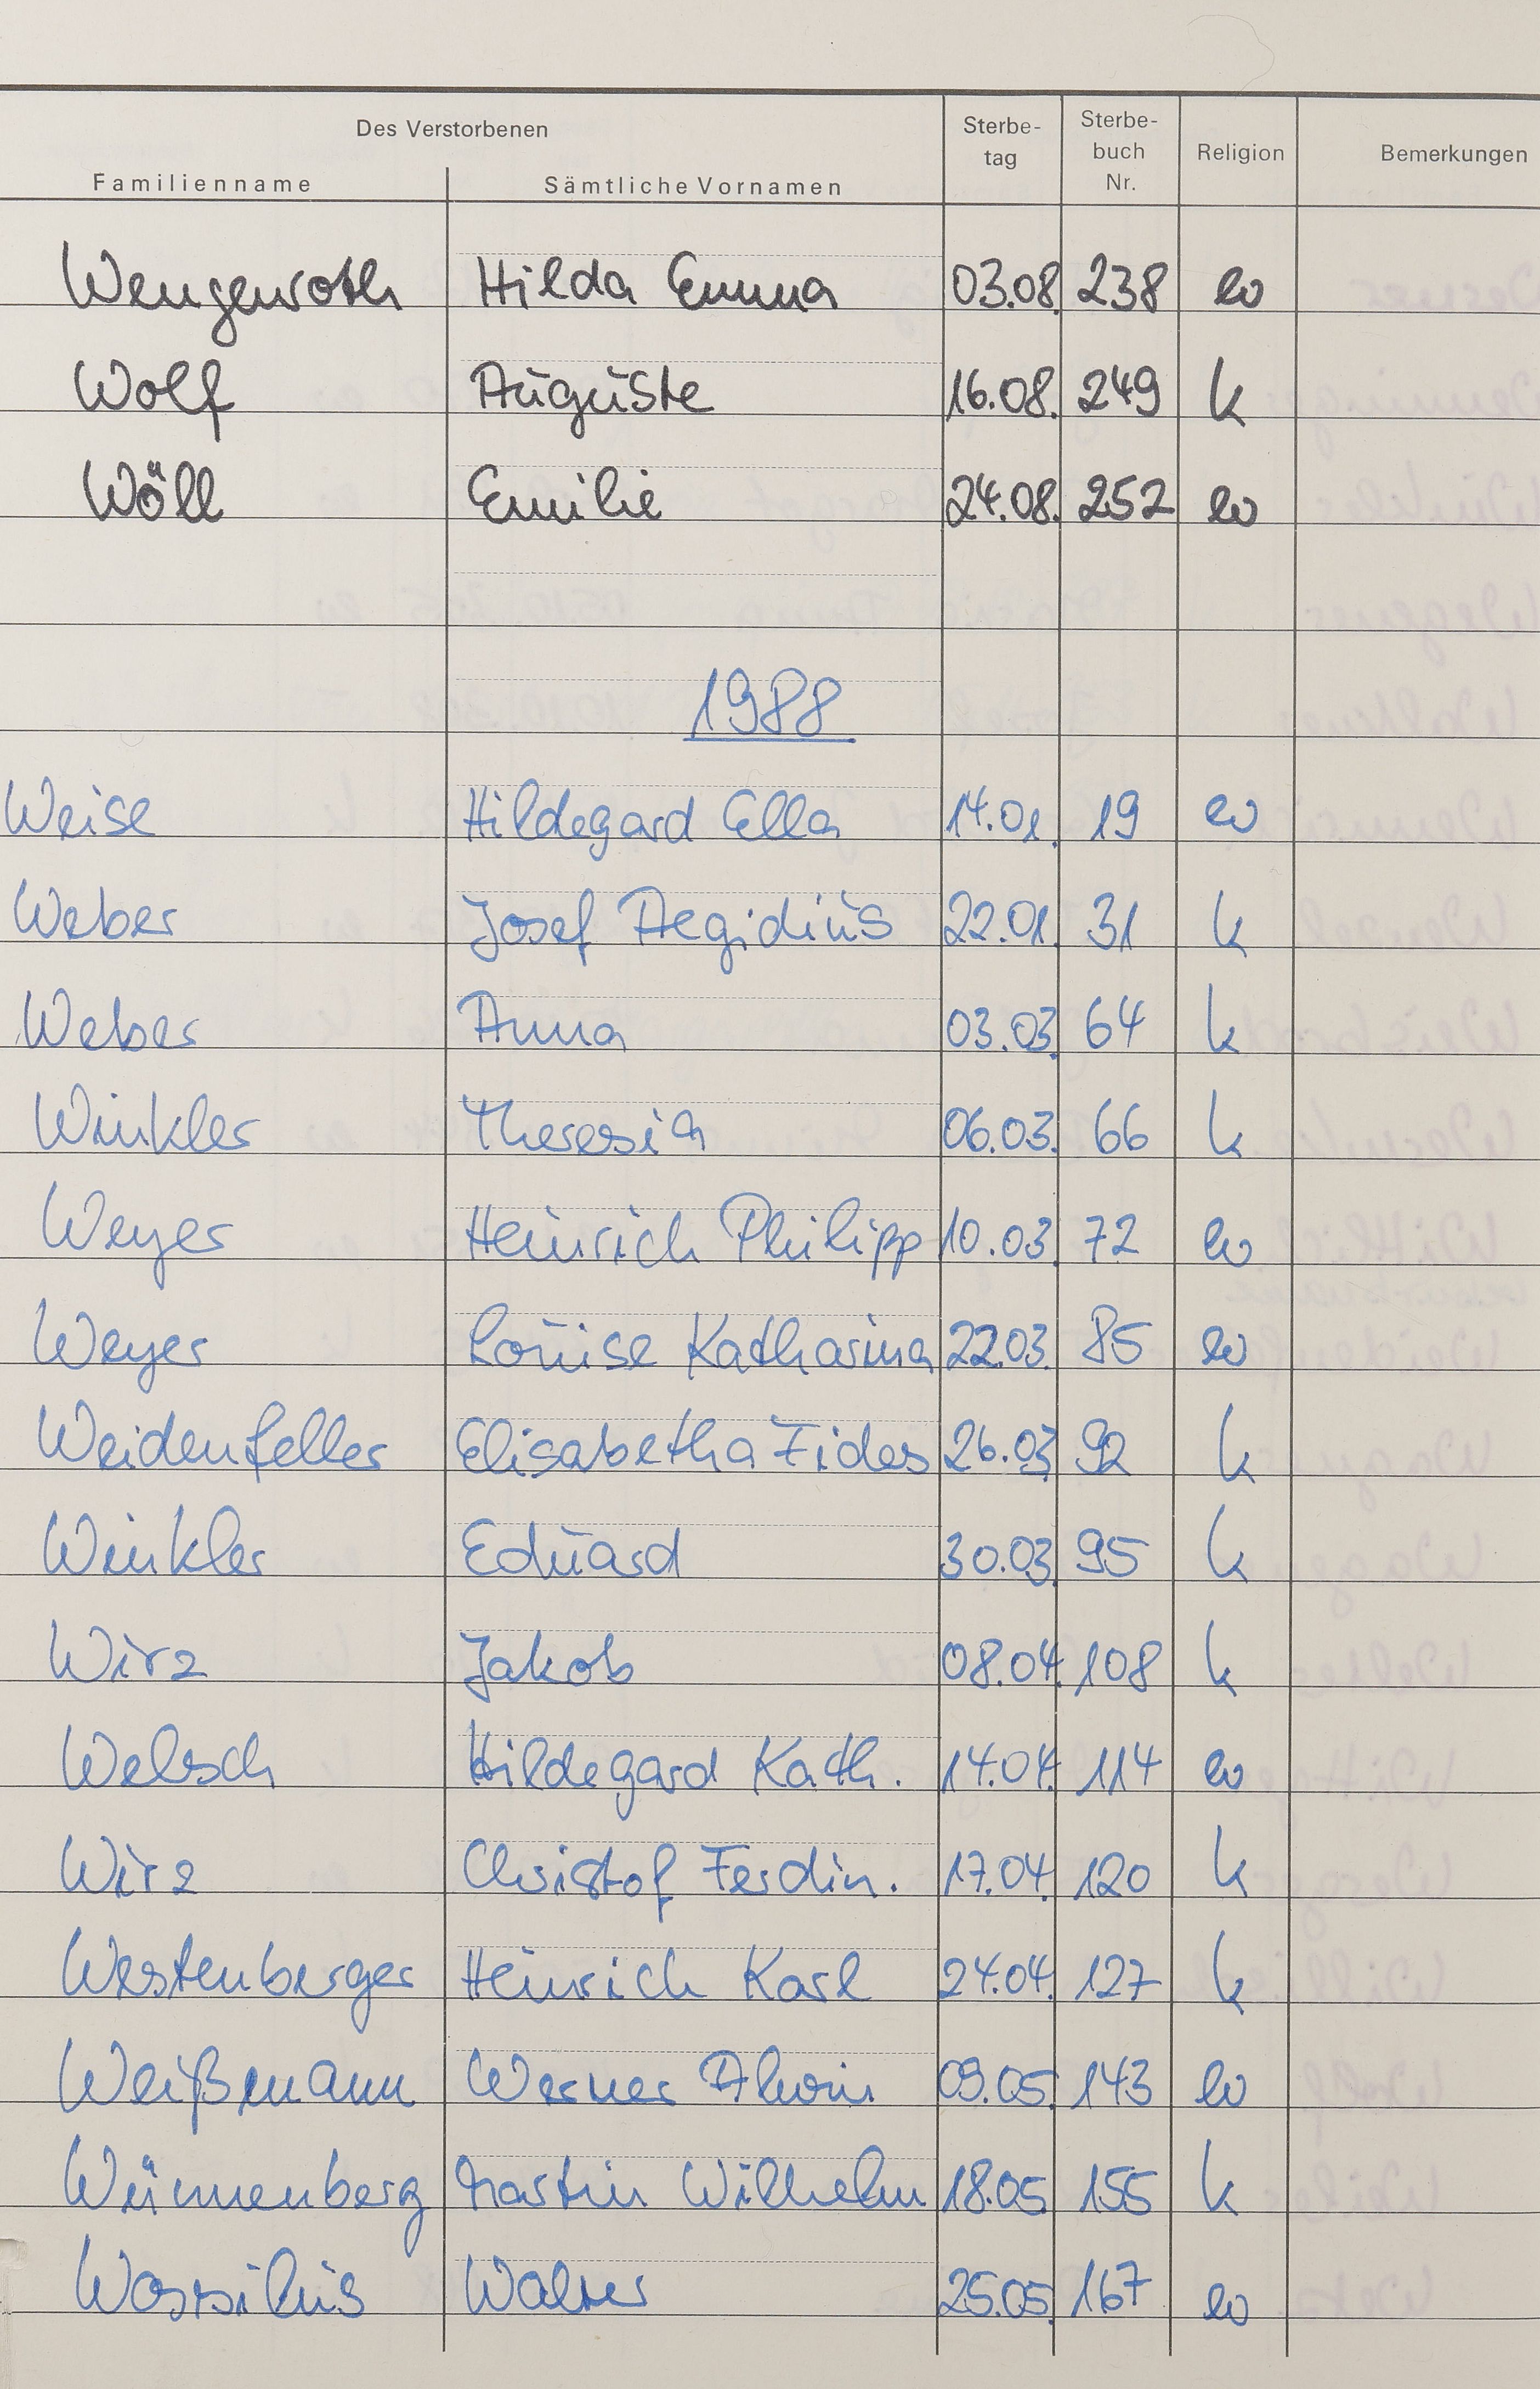 Des Verstorbenen
Familienname Sämtliche Vornamen Sterbe-tag Sterbe-buch Nr. Religion Bemerkungen
Wengenroth Hilda Emma 03.08. 238 ev
Wolf Auguste 16.08. 249 k
Wöll Emilie 24.08. 252 ev
1988
Weise Hildegard Ella 14.01. 19 ev
Weber Josef Aegidius 22.01. 31 k
Weber Anna 03.03. 64 k
Winkler Theresia 06.03. 66 k
Weyer Heinrich Philipp 10.03. 72 ev
Weyer Louise Katharina 22.03. 85 ev
Weidenfeller Elisabetha Fides 26.03. 92 k
Winkler Eduard 30.03. 95 k
Wirz Jakob 08.04. 108 k
Welsch Hildegard Kath. 14.04. 114 ev
Wirz Christof Ferdin. 17.04. 120 k
Westenberger Heinrich Karl 24.04. 127 k
Weißmann Werner Alwin 09.05. 143 ev
Wünnenberg Martin Wilhelm 18.05. 155 k
Wassilius Walter 25.05. 167 ev